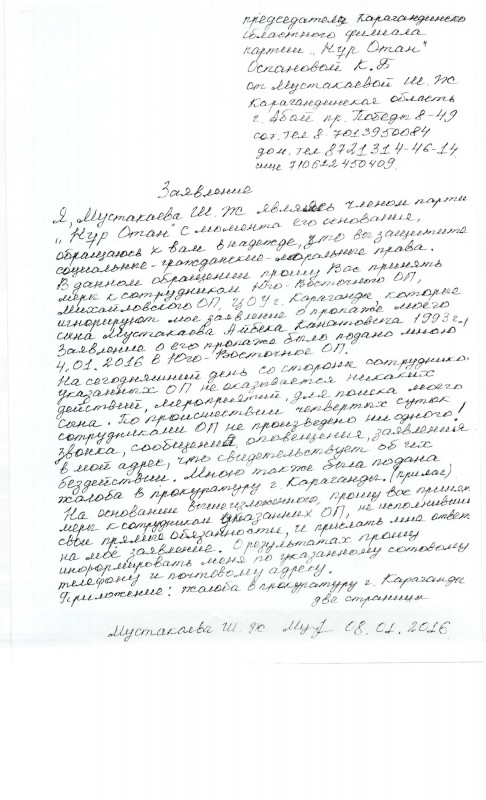 председателю Карагандинско
областного филиала
партии „Нур Отан"
Оспановой К.Б
от Мустакаевой Ш. Ж
Карагандинская область
г. Абай пр. Победы 8-49
сот. тел 8 7013950084
дом. тел 8721314-46-14
иин 710612450409.
Заявление
Я, Мустакаева Ш. Ж являюсь членом парти
„Нур Отан" с момента его основания,
обращаюсь к вам в надежде, что вы защитите
социальные-гражданские-моральные права.
В данном обращении прошу Вас принять
меры к сотрудникам Юго-Восточного ОП,
Михайловского ОП, г. Караганде, которые
игнорируют мое заявление о пропаже моего
сына Мустакаева Айбека Канатовича 1993г.,
Заявление о его пропаже было подано мною
4.01.2016 в Юго-Восточное ОП.
На сегодняшний день со стороны сотруднико
указанных ОП не оказывается никаких
действий, мероприятий, для поиска моего
сына. По происшествии четвертых суток
сотрудниками ОП не произведено ни одного!
звонка, сообщений оповещения, заявления
в мой адрес, что свидетельствует об их
бездействии. Мною также была подана
жалоба в прокуратуру г. Караганды. (прилаг)
На основании вышеизложенного, прошу вас принят
меры к сотрудникам указанных ОП, не исполнивши
свои прямые обязанности, и прислать мне ответ
на моё заявление. О результатах прошу
информировать меня по указанному сотовому
телефону и почтовому адресу.
Приложение: жалоба в прокуратуру г. Караганды
две страницы
Мустакаева Ш. Ж. 08.01.2016